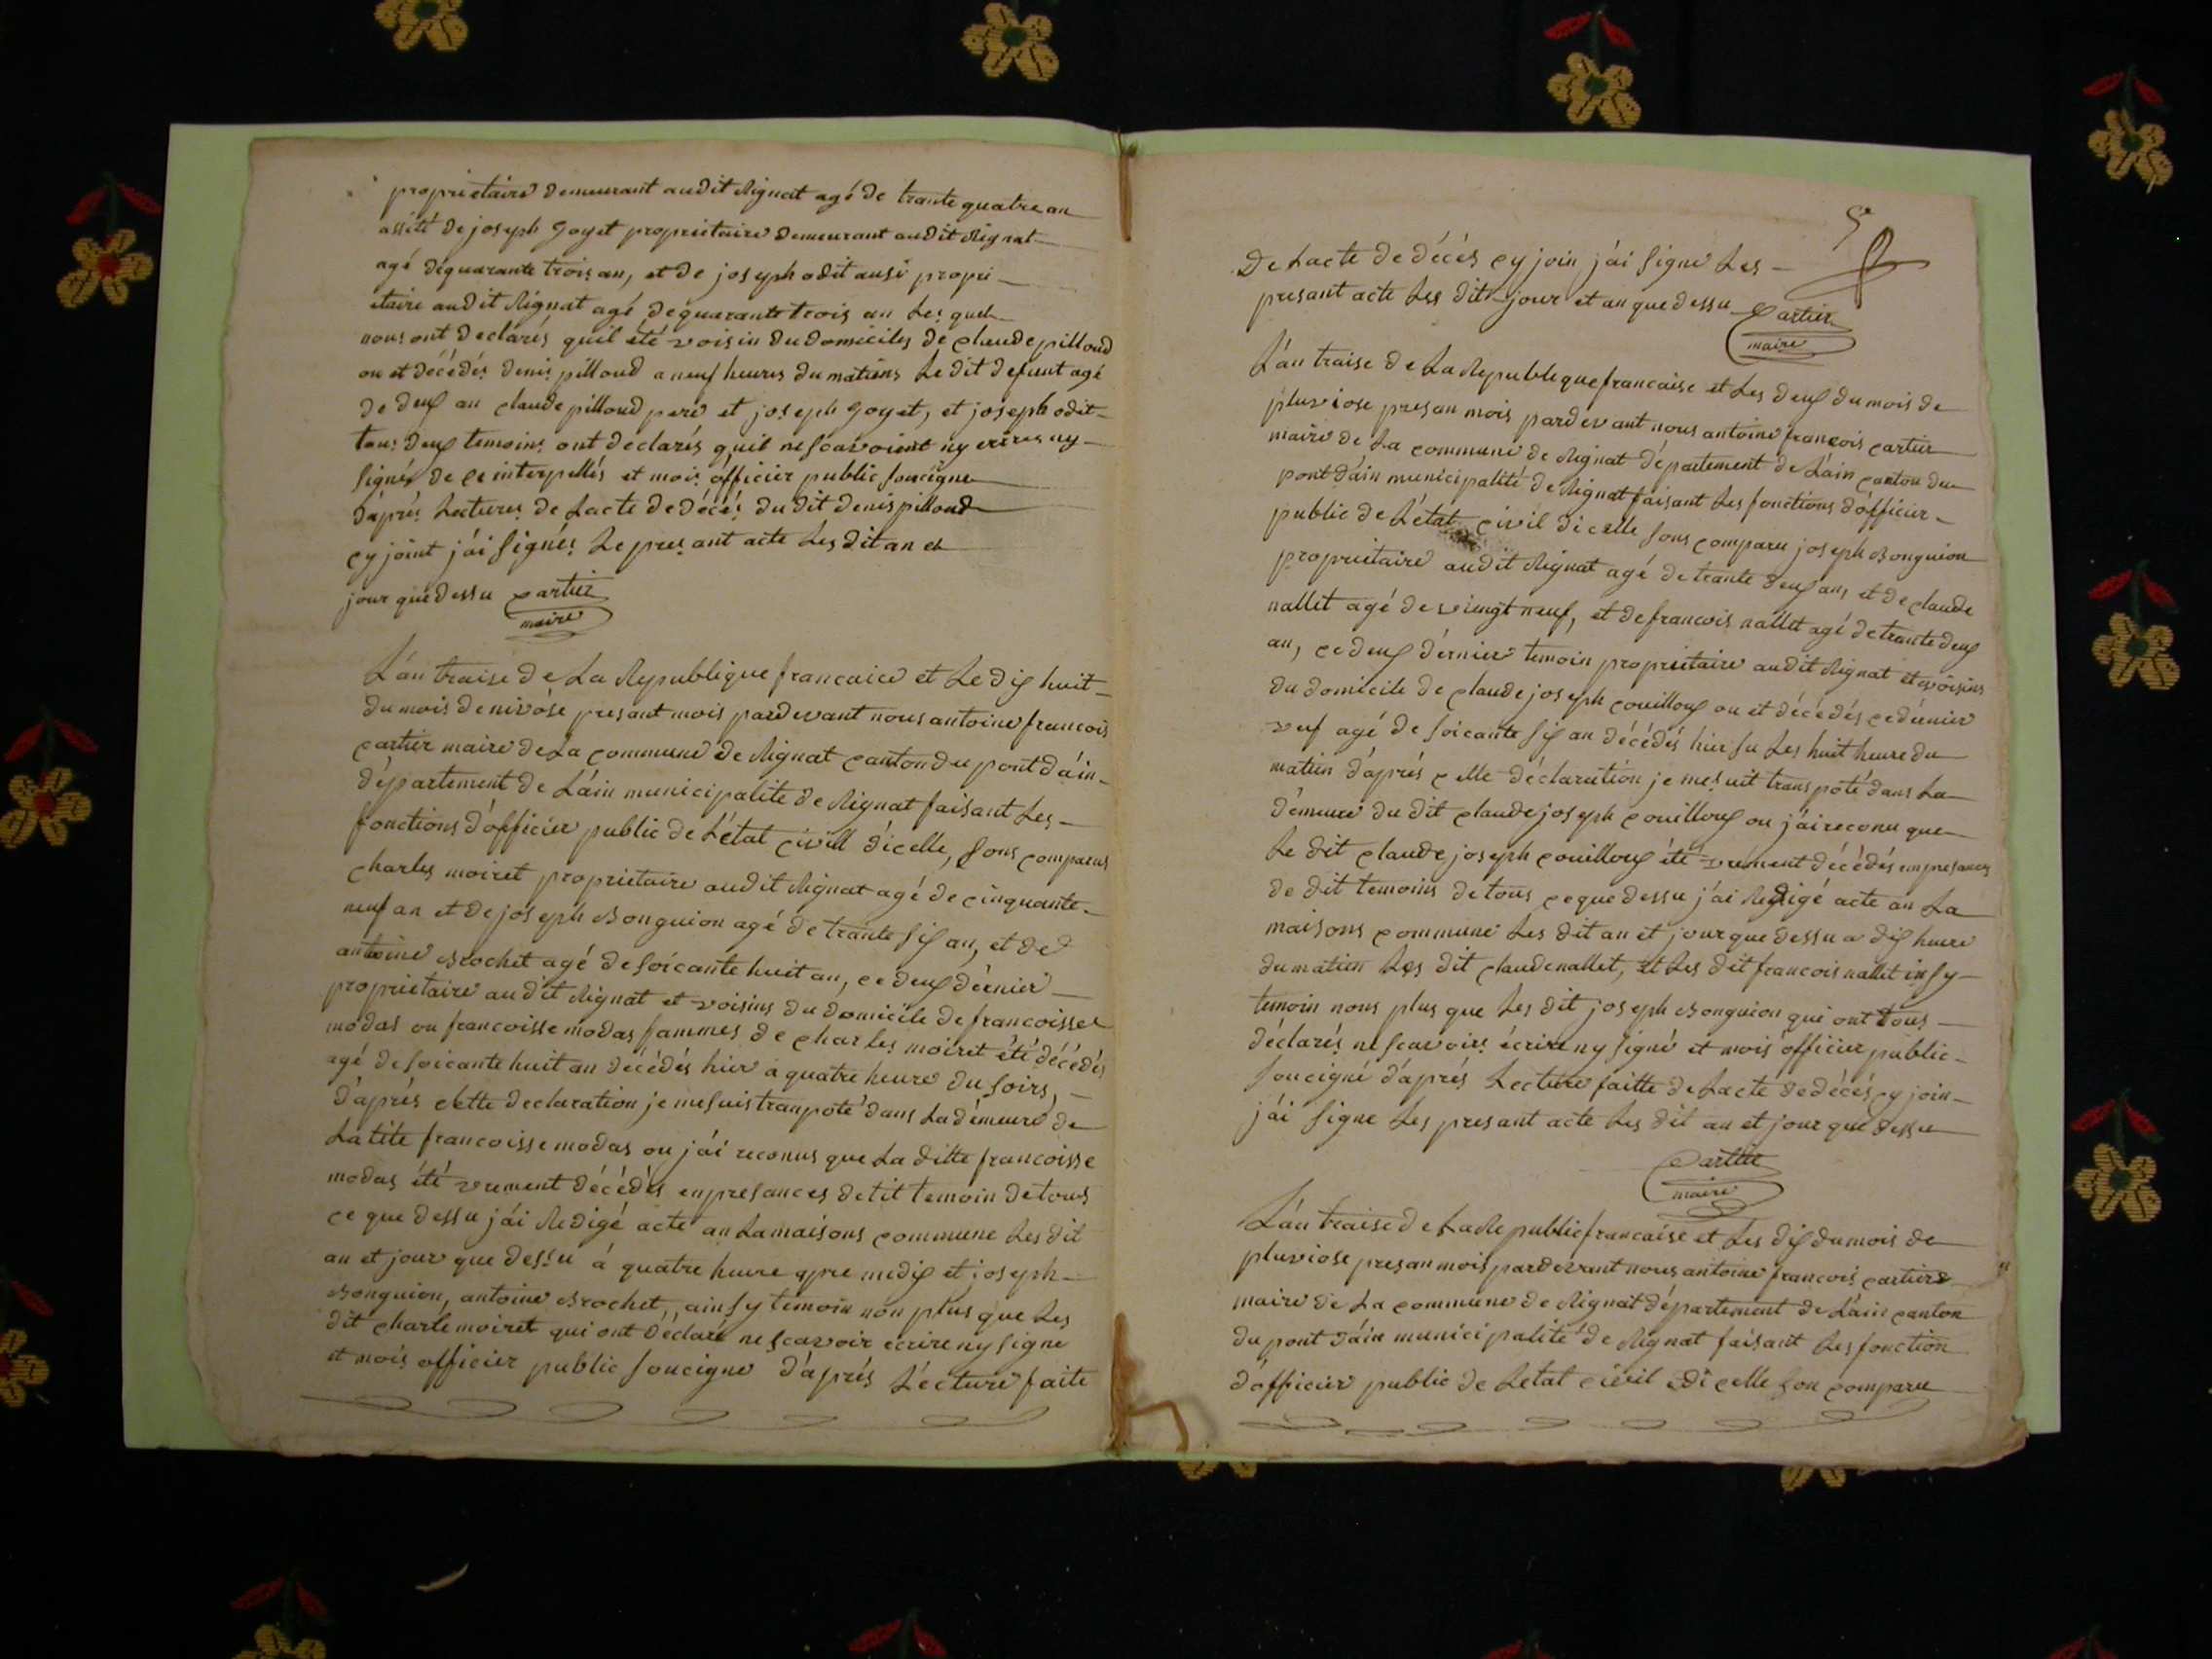 proprietaire demeurant audit Rignat agé de trante quatre an
assité de joseph goyet proprietaire demeurant audit Rignat
agé dequarante trois an, et de joseph odit ausi propri
etaire audit Rignat agé dequarante trois an Les quels
nous ont declarés quil été voisin du domiciles de claude pilloud
ou et décédés denis pilloud a neuf heures du matiens Le dit defunt agé
de deux an claude pilloud pere et joseph goyet, et joseph odit
tous deux temoins ont declarés quil ne scavoient ny ecrires ny
signés de ce interpellés et mois officier public soucigne
dáprés Lectures de Lacte de décés du dit denis pilloud
cy joint jái signés Le presant acte Les dit an et
jour que dessu cartier
maire
Lán traise de La Republique francaice et Le dix huit
du mois de nivóse presant mois pardevant nous antoine francois
cartier maire de La commune de Rignat canton du pont dáin
département de Láin municipalite de Rignat faisant Les
fonctions dófficier public de Létat civill dicelle, sons comparus
charles moiret proprietaire audit Rignat agé de cinquante
neuf an et de joseph Bonguion agé de trante six an, et de
antoine Brochet agé de soicante huit an, ce deux dérnier
proprietaire au dit Rignat et voisins du domicile de francoisse
modas ou francoisse modas fammes de charles moiret été décédés
agé de soicante huit an décédés hier á quatre heure du soirs,
dáprés cette declaration je me suis tranpoté dans La démeure de
La tite francoisse modas ou jái reconus que La ditte francoisse
modas été vrement décédés en presances de tit temoin de tous
ce que dessu jái Redigé acte an La maisons commune Les dit
an et jour que dessu á quatre heure apre midix et joseph
Bonguion, antoine Brochet, ainsy temoin non plus que Les
dit charle moiret qui ont déclaré ne scavoir ecrire ny signe
et mois officier public soucigne dáprés Lécture faite
5e
De Lacte de décés cy join jái signe Les
presant acte Les dit jour et an que dessu Cartier
maire
Lán traise de La Republeque francaise et Les deux du mois de
pluviose presan mois pardevant nous antoine francois cartier
maire de La commune de Rignat département de Láin canton du
pont dáin municipalité de Rignat faisant Les fonctions dófficier
public de Létat civil dicelle sons comparu joseph Bonguion
proprietaire audit Rignat agé de trante deux an, et de claude
nallet agé de vingt neuf, et de francois nallet agé de trante deux
an, ce deux dérnier temoin proprietaire audit Rignat et voisins
du domicile de claude joseph couilloux ou et décédés ce dérnier
veuf agé de soicante six an décédés hier su Les huit heure du
matien dáprés cette déclaration je me suit transpoté dans La
démeure du dit claude joseph couilloux ou jái reconu que
Le dit claude joseph couilloux été vrément décédés en presances
de dit temoins de tous ce que dessu jái Redigé acte an La
maisons commune Les dit an et jour que dessu a dix heure
du matien Les dit claude nallet, et Les dit francois nallet insy
temoin nous plus que Les dit joseph Bonguion qui ont tous
déclarés ne scavoirs écrire ny signé et mois officier public
soucigné dáprés Lecture faitte de Lacte de décés cy join
jái signe Les presant acte Les dit an et jour que dessu
Cartier
maire
Lán traise de La Republic francaise et Les dix du mois de
pluviose presan mois pardevant nous antoine francois cartiers
maire de La commune de Rignat département de Láin canton
du pont dáin municipalité de Rignat faisant Les fonction
dófficier public de Letat civil dicelle son comparu